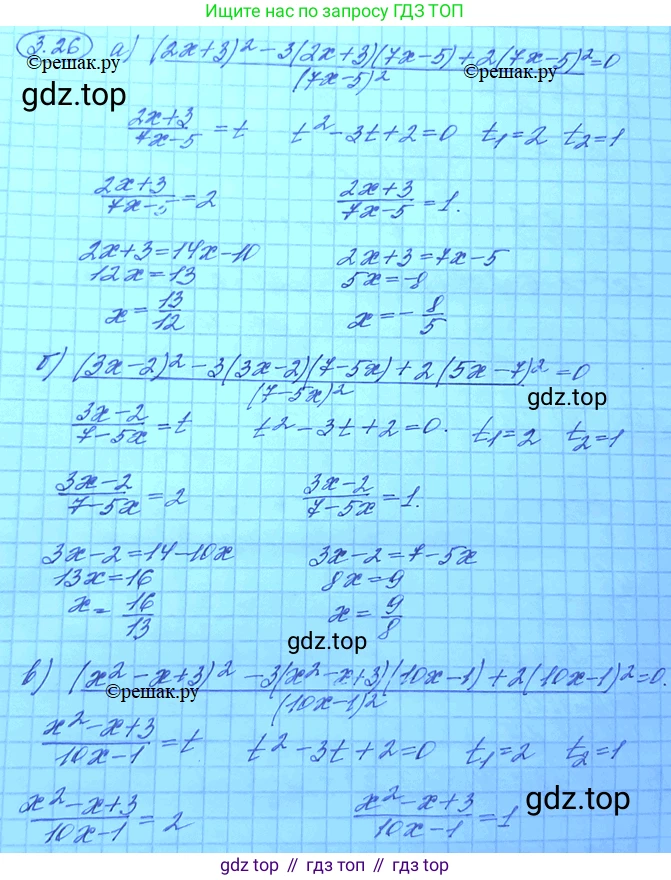 Ищите нас по запросу ГДЗ ТОП
3.26 а) (2x+3)² - 3(2x+3)(7x-5) + 2(7x-5)² / (7x-5)² = 0
©решак.ру ©решак.ру
gdz.top gdz.top
(2x+3)/(7x-5) = t t² - 3t + 2 = 0 t₁ = 2 t₂ = 1
(2x+3)/(7x-5) = 2 (2x+3)/(7x-5) = 1.
2x+3 = 14x-10 2x+3 = 7x-5
12x = 13 5x = -8
x = 13/12 x = -8/5
б) (3x-2)² - 3(3x-2)(7-5x) + 2(5x-7)² / (7-5x)² = 0
gdz.top
(3x-2)/(7-5x) = t t² - 3t + 2 = 0. t₁ = 2 t₂ = 1
(3x-2)/(7-5x) = 2 (3x-2)/(7-5x) = 1.
3x-2 = 14-10x 3x-2 = 7-5x
13x = 16 8x = 9
x = 16/13 x = 9/8
gdz.top
в) (x²-x+3)² - 3(x²-x+3)(10x-1) + 2(10x-1)² / (10x-1)² = 0.
©решак.ру
(x²-x+3)/(10x-1) = t t² - 3t + 2 = 0 t₁ = 2 t₂ = 1
(x²-x+3)/(10x-1) = 2 (x²-x+3)/(10x-1) = 1
gdz.top
gdz.top // гдз топ // гдз.топ